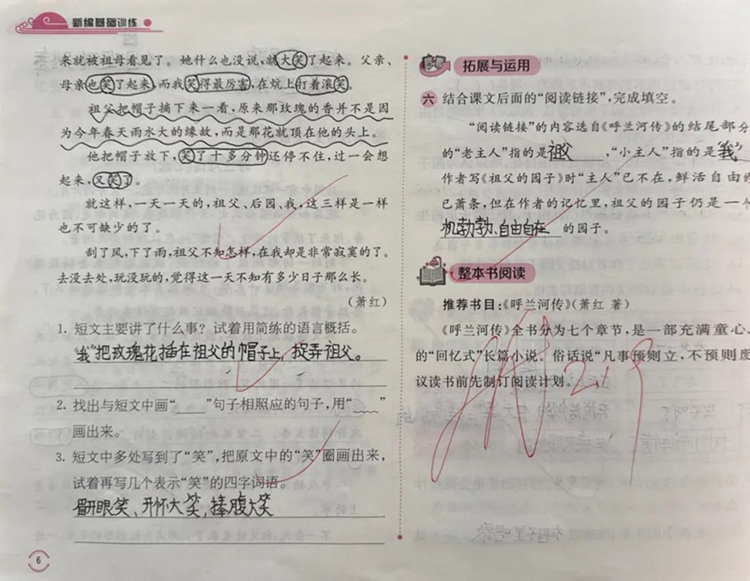 新编基础训练
来就被祖母看见了。她什么也没说,就大笑了起来。父亲、
母亲也笑了起来,而我笑得最厉害,在炕上打着滚笑。
祖父把帽子摘下来一看,原来那玫瑰的香并不是因
为今年春天雨水大的缘故,而是那花就顶在他的头上。
他把帽子放下,笑了十多分钟还停不住,过一会想
起来,又笑了。
就这样,一天一天的,祖父、后园、我,这三样是一样
也不可缺少的了。
刮了风,下了雨,祖父不知怎样,在我却是非常寂寞的了。
去没去处,玩没玩的,觉得这一天不知有多少日子那么长。
(萧红)
1. 短文主要讲了什么事?试着用简练的语言概括。
“我”把玫瑰花插在祖父的帽子上,捉弄祖父。
2. 找出与短文中画“____”句子相照应的句子,用“﹏﹏”
画出来。
3. 短文中多处写到了“笑”,把原文中的“笑”圈画出来,
试着再写几个表示“笑”的四字词语。
眉开眼笑、开怀大笑,捧腹大笑
6
拓展与运用
六 结合课文后面的“阅读链接”,完成填空。
“阅读链接”的内容选自《呼兰河传》的结尾部分
的“老主人”指的是祖父,“小主人”指的是“我”
作者写《祖父的园子》时“主人”已不在,鲜活自由的
已萧条,但在作者的记忆里,祖父的园子仍是一个
机勃勃、自由自在 的园子。
整本书阅读
推荐书目:《呼兰河传》(萧红 著)
《呼兰河传》全书分为七个章节,是一部充满童心、
的“回忆式”长篇小说。俗话说“凡事预则立,不预则废
议读书前先制订阅读计划。
2.19